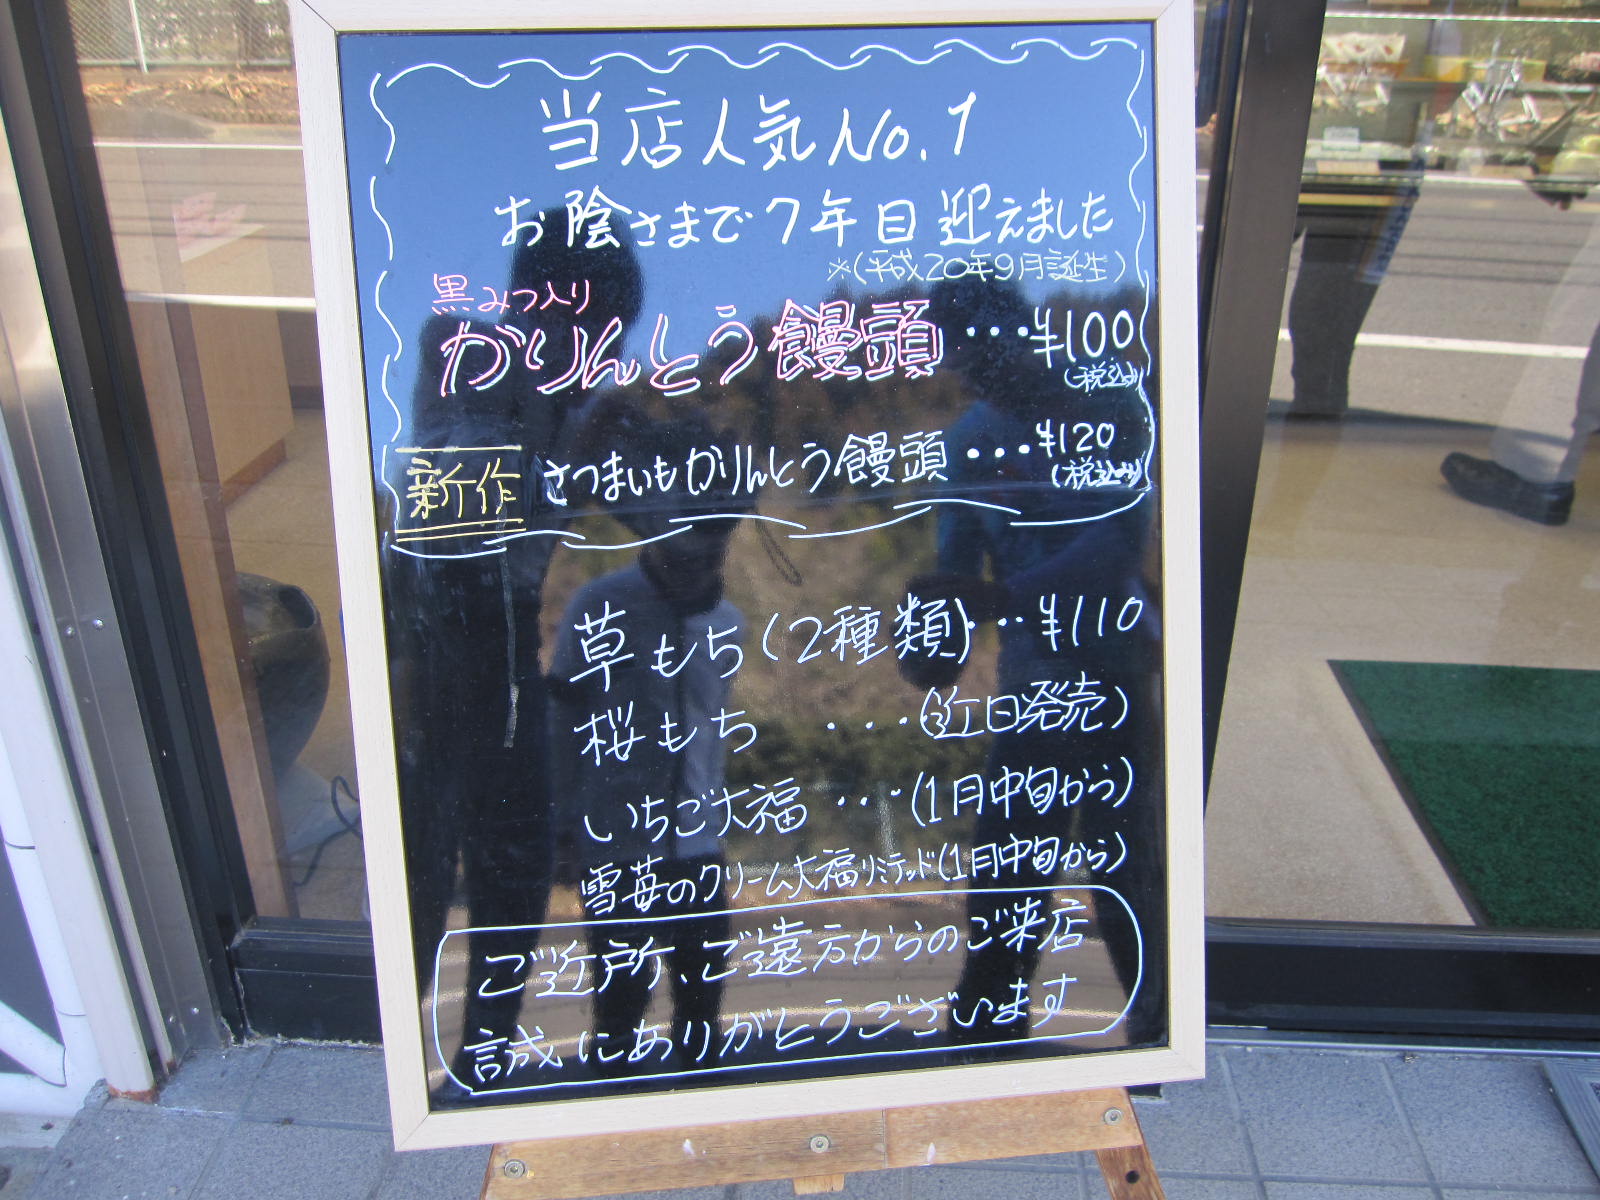 当店人気No.1
お陰さまで7年目迎えました
※(平成20年9月誕生)
黒みつ入り
かりんとう饅頭…¥100
(税込み)
新作 さつまいもかりんとう饅頭…¥120
(税込み)
草もち(2種類)…¥110
桜もち …(近日発売)
いちご大福 …(1月中旬から)
雪苺のクリーム大福リミテッド(1月中旬から)
ご近所、ご遠方からのご来店
誠にありがとうございます